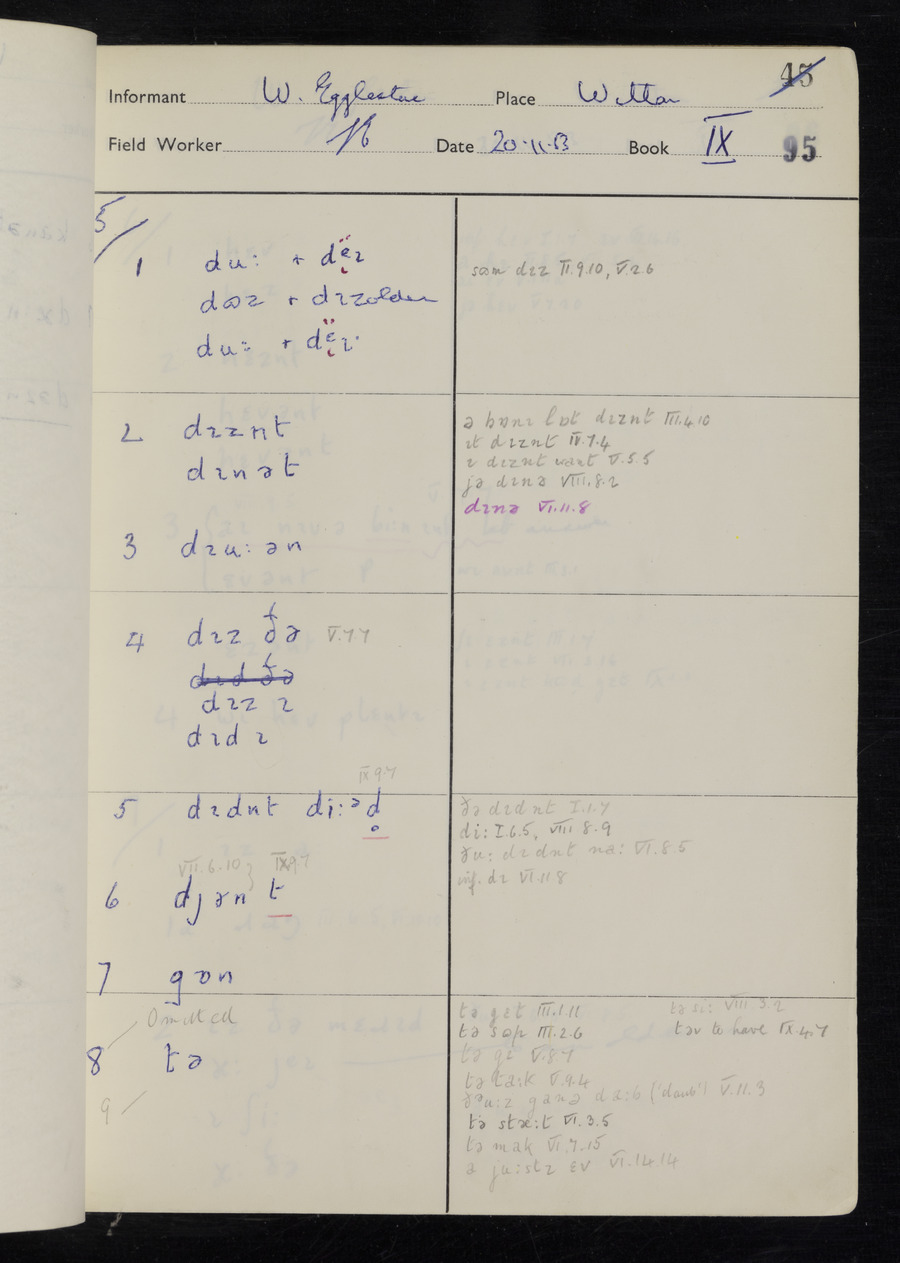 45
Informant W. Egglestone Place Witton
Field Worker Date 20.11.53 Book IX 95
5/
1 du: + dɛ̈ɪ
dʊz + dɪzolder
du: + dɛ̈ɪ
sʊm dɪz II.9.10, V.2.6
2 dɪznt
dɪnət
ə bɒnɪ lɒt dɪznt III.4.10
ɪt dɪznt IV.7.4
ɪ dɪznt want V.5.5
jə dɪnə VIII.8.2
dɪnə VI.11.8
3 dɪu:ən
4 dɪz ðə V.7.7
dɪd ðə
dɪz ɪ
dɪd ɪ
IX.9.7
5 dɪdnt di:əd̥
ðə dɪdnt I.1.7
di: I.6.5, VIII.8.9
ðu: dɪdnt na: VI.8.5
inf. dɪ VI.11.8
VII.6.10; IX.9.7
6 djənt
7 gɒn
Omitted
8 tə
9
tə gɛt III.1.11
tə sʊp III.2.6
tə gɪ V.8.7
tə ta:k V.9.4
ðəu:z ganə da:b ('daub') V.11.3
tə stæ:t VI.3.5
tə mak VI.7.15
ə ju:stɪ ɛv VI.14.14
tə si: VIII.3.2
təv to have IX.4.7